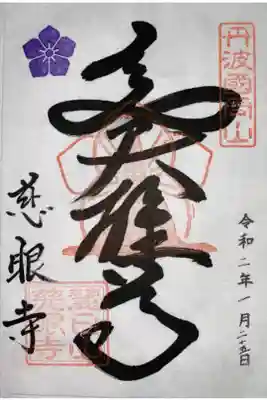 丹波國周山
令和二年一月二十五日
大雄尊
慈眼寺